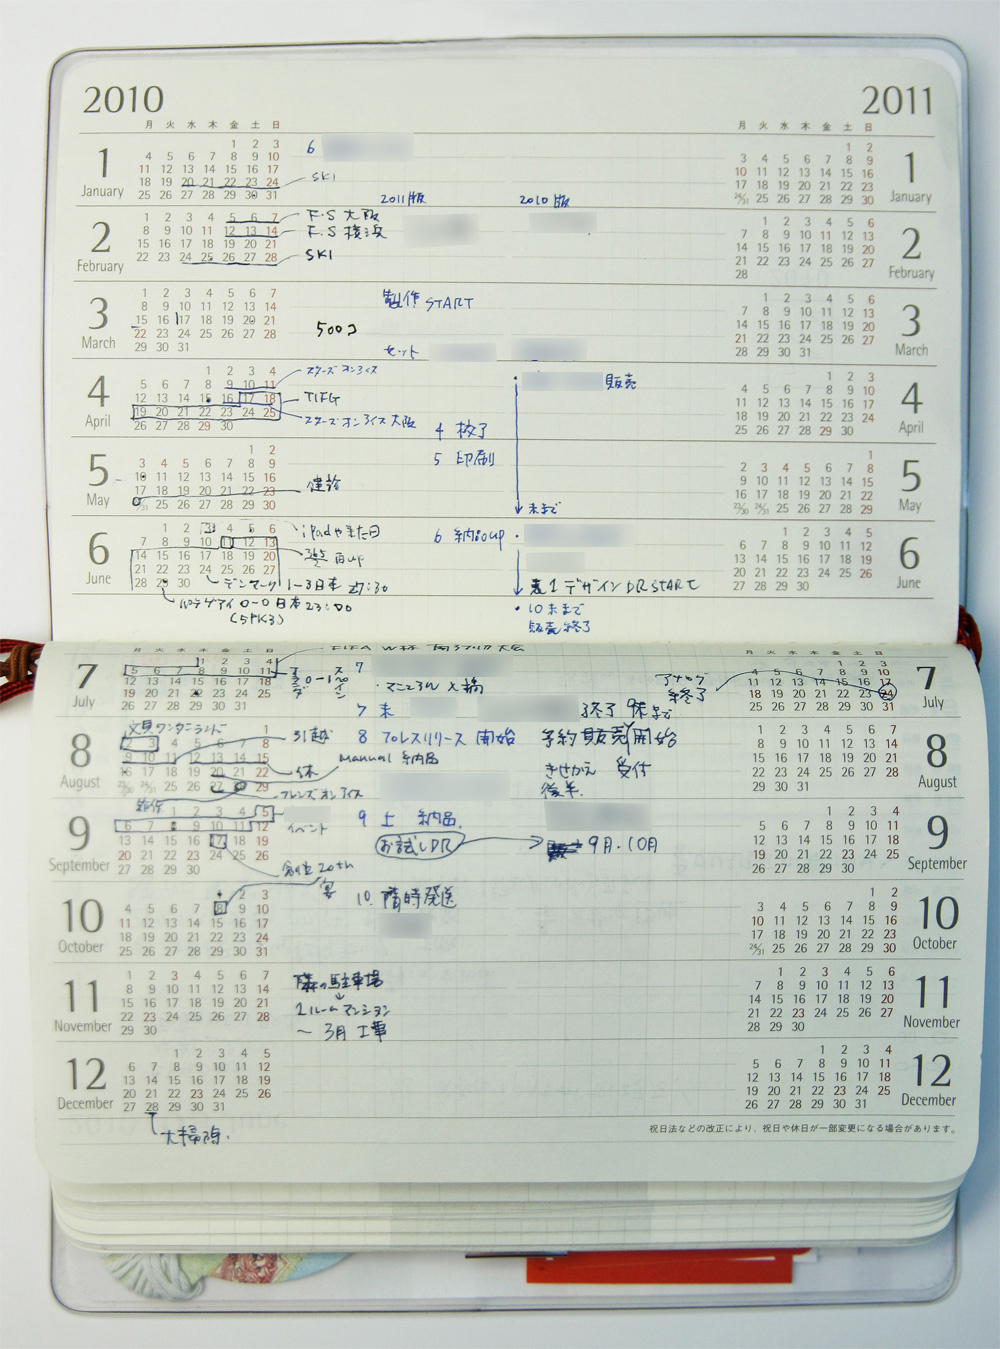 2010
2011
月 火 水 木 金 土 日
月 火 水 木 金 土 日
1
January
1 2 3
4 5 6 7 8 9 10
11 12 13 14 15 16 17
18 19 20 21 22 23 24
25 26 27 28 29 30 31
6
SKI
2011版
2010版
1 2
3 4 5 6 7 8 9
10 11 12 13 14 15 16
17 18 19 20 21 22 23
24/31 25 26 27 28 29 30
1
January
2
February
1 2 3 4 5 6 7
8 9 10 11 12 13 14
15 16 17 18 19 20 21
22 23 24 25 26 27 28
F.S 大阪
F.S 横浜
SKI
1 2 3 4 5 6
7 8 9 10 11 12 13
14 15 16 17 18 19 20
21 22 23 24 25 26 27
28
2
February
3
March
1 2 3 4 5 6 7
8 9 10 11 12 13 14
15 16 17 18 19 20 21
22 23 24 25 26 27 28
29 30 31
製作 START
500コ
セット
1 2 3 4 5 6
7 8 9 10 11 12 13
14 15 16 17 18 19 20
21 22 23 24 25 26 27
28 29 30 31
3
March
4
April
1 2 3 4
5 6 7 8 9 10 11
12 13 14 15 16 17 18
19 20 21 22 23 24 25
26 27 28 29 30
スターズ オン アイス
TIFG
スターズ オン アイス 大阪
4 校了
販売
1 2 3
4 5 6 7 8 9 10
11 12 13 14 15 16 17
18 19 20 21 22 23 24
25 26 27 28 29 30
4
April
5
May
1 2
3 4 5 6 7 8 9
10 11 12 13 14 15 16
17 18 19 20 21 22 23
24/31 25 26 27 28 29 30
5 印刷
健診
末まで
1
2 3 4 5 6 7 8
9 10 11 12 13 14 15
16 17 18 19 20 21 22
23/30 24/31 25 26 27 28 29
5
May
6
June
1 2 3 4 5 6
7 8 9 10 11 12 13
14 15 16 17 18 19 20
21 22 23 24 25 26 27
28 29 30
iPadやきた日
デンマーク 1-3日本 27:30
パラグアイ 0-0 日本 23:00
(5PK3)
6 納品up
表1 デザイン DR START
10 末まで
販売 終了
1 2 3 4 5
6 7 8 9 10 11 12
13 14 15 16 17 18 19
20 21 22 23 24 25 26
27 28 29 30
6
June
7
July
1 2 3 4
5 6 7 8 9 10 11
12 13 14 15 16 17 18
19 20 21 22 23 24 25
26 27 28 29 30 31
FIFA W杯 南アフリカ大会
オランダ 0-1 スペイン
7
7 末
終了 9末まで
アナログ
終了
1 2 3
4 5 6 7 8 9 10
11 12 13 14 15 16 17
18 19 20 21 22 23 24
25 26 27 28 29 30 31
7
July
8
August
文具ワンダーランド
1
2 3 4 5 6 7 8
9 10 11 12 13 14 15
16 17 18 19 20 21 22
23/30 24/31 25 26 27 28 29
引越
休
フレンズオンアイス
8 プレスリリース 開始
manual 納品
予約販売開始
きせかえ 受付
後半
1 2 3 4 5 6 7
8 9 10 11 12 13 14
15 16 17 18 19 20 21
22 23 24 25 26 27 28
29 30 31
8
August
9
September
1 2 3 4 5
6 7 8 9 10 11 12
13 14 15 16 17 18 19
20 21 22 23 24 25 26
27 28 29 30
イベント
創立 20th
宴
9 上 納品.
お試しDR
9月.10月
1 2 3 4
5 6 7 8 9 10 11
12 13 14 15 16 17 18
19 20 21 22 23 24 25
26 27 28 29 30
9
September
10
October
1 2 3
4 5 6 7 8 9 10
11 12 13 14 15 16 17
18 19 20 21 22 23 24
25 26 27 28 29 30 31
10. 随時発送
1 2
3 4 5 6 7 8 9
10 11 12 13 14 15 16
17 18 19 20 21 22 23
24/31 25 26 27 28 29 30
10
October
11
November
1 2 3 4 5 6 7
8 9 10 11 12 13 14
15 16 17 18 19 20 21
22 23 24 25 26 27 28
29 30
隣の駐車場
1ルームマンション
～3月 工事
1 2 3 4 5 6
7 8 9 10 11 12 13
14 15 16 17 18 19 20
21 22 23 24 25 26 27
28 29 30
11
November
12
December
1 2 3 4 5
6 7 8 9 10 11 12
13 14 15 16 17 18 19
20 21 22 23 24 25 26
27 28 29 30 31
大掃除.
1 2 3 4
5 6 7 8 9 10 11
12 13 14 15 16 17 18
19 20 21 22 23 24 25
26 27 28 29 30 31
12
December
祝日法などの改正により、祝日や休日が一部変更になる場合があります。